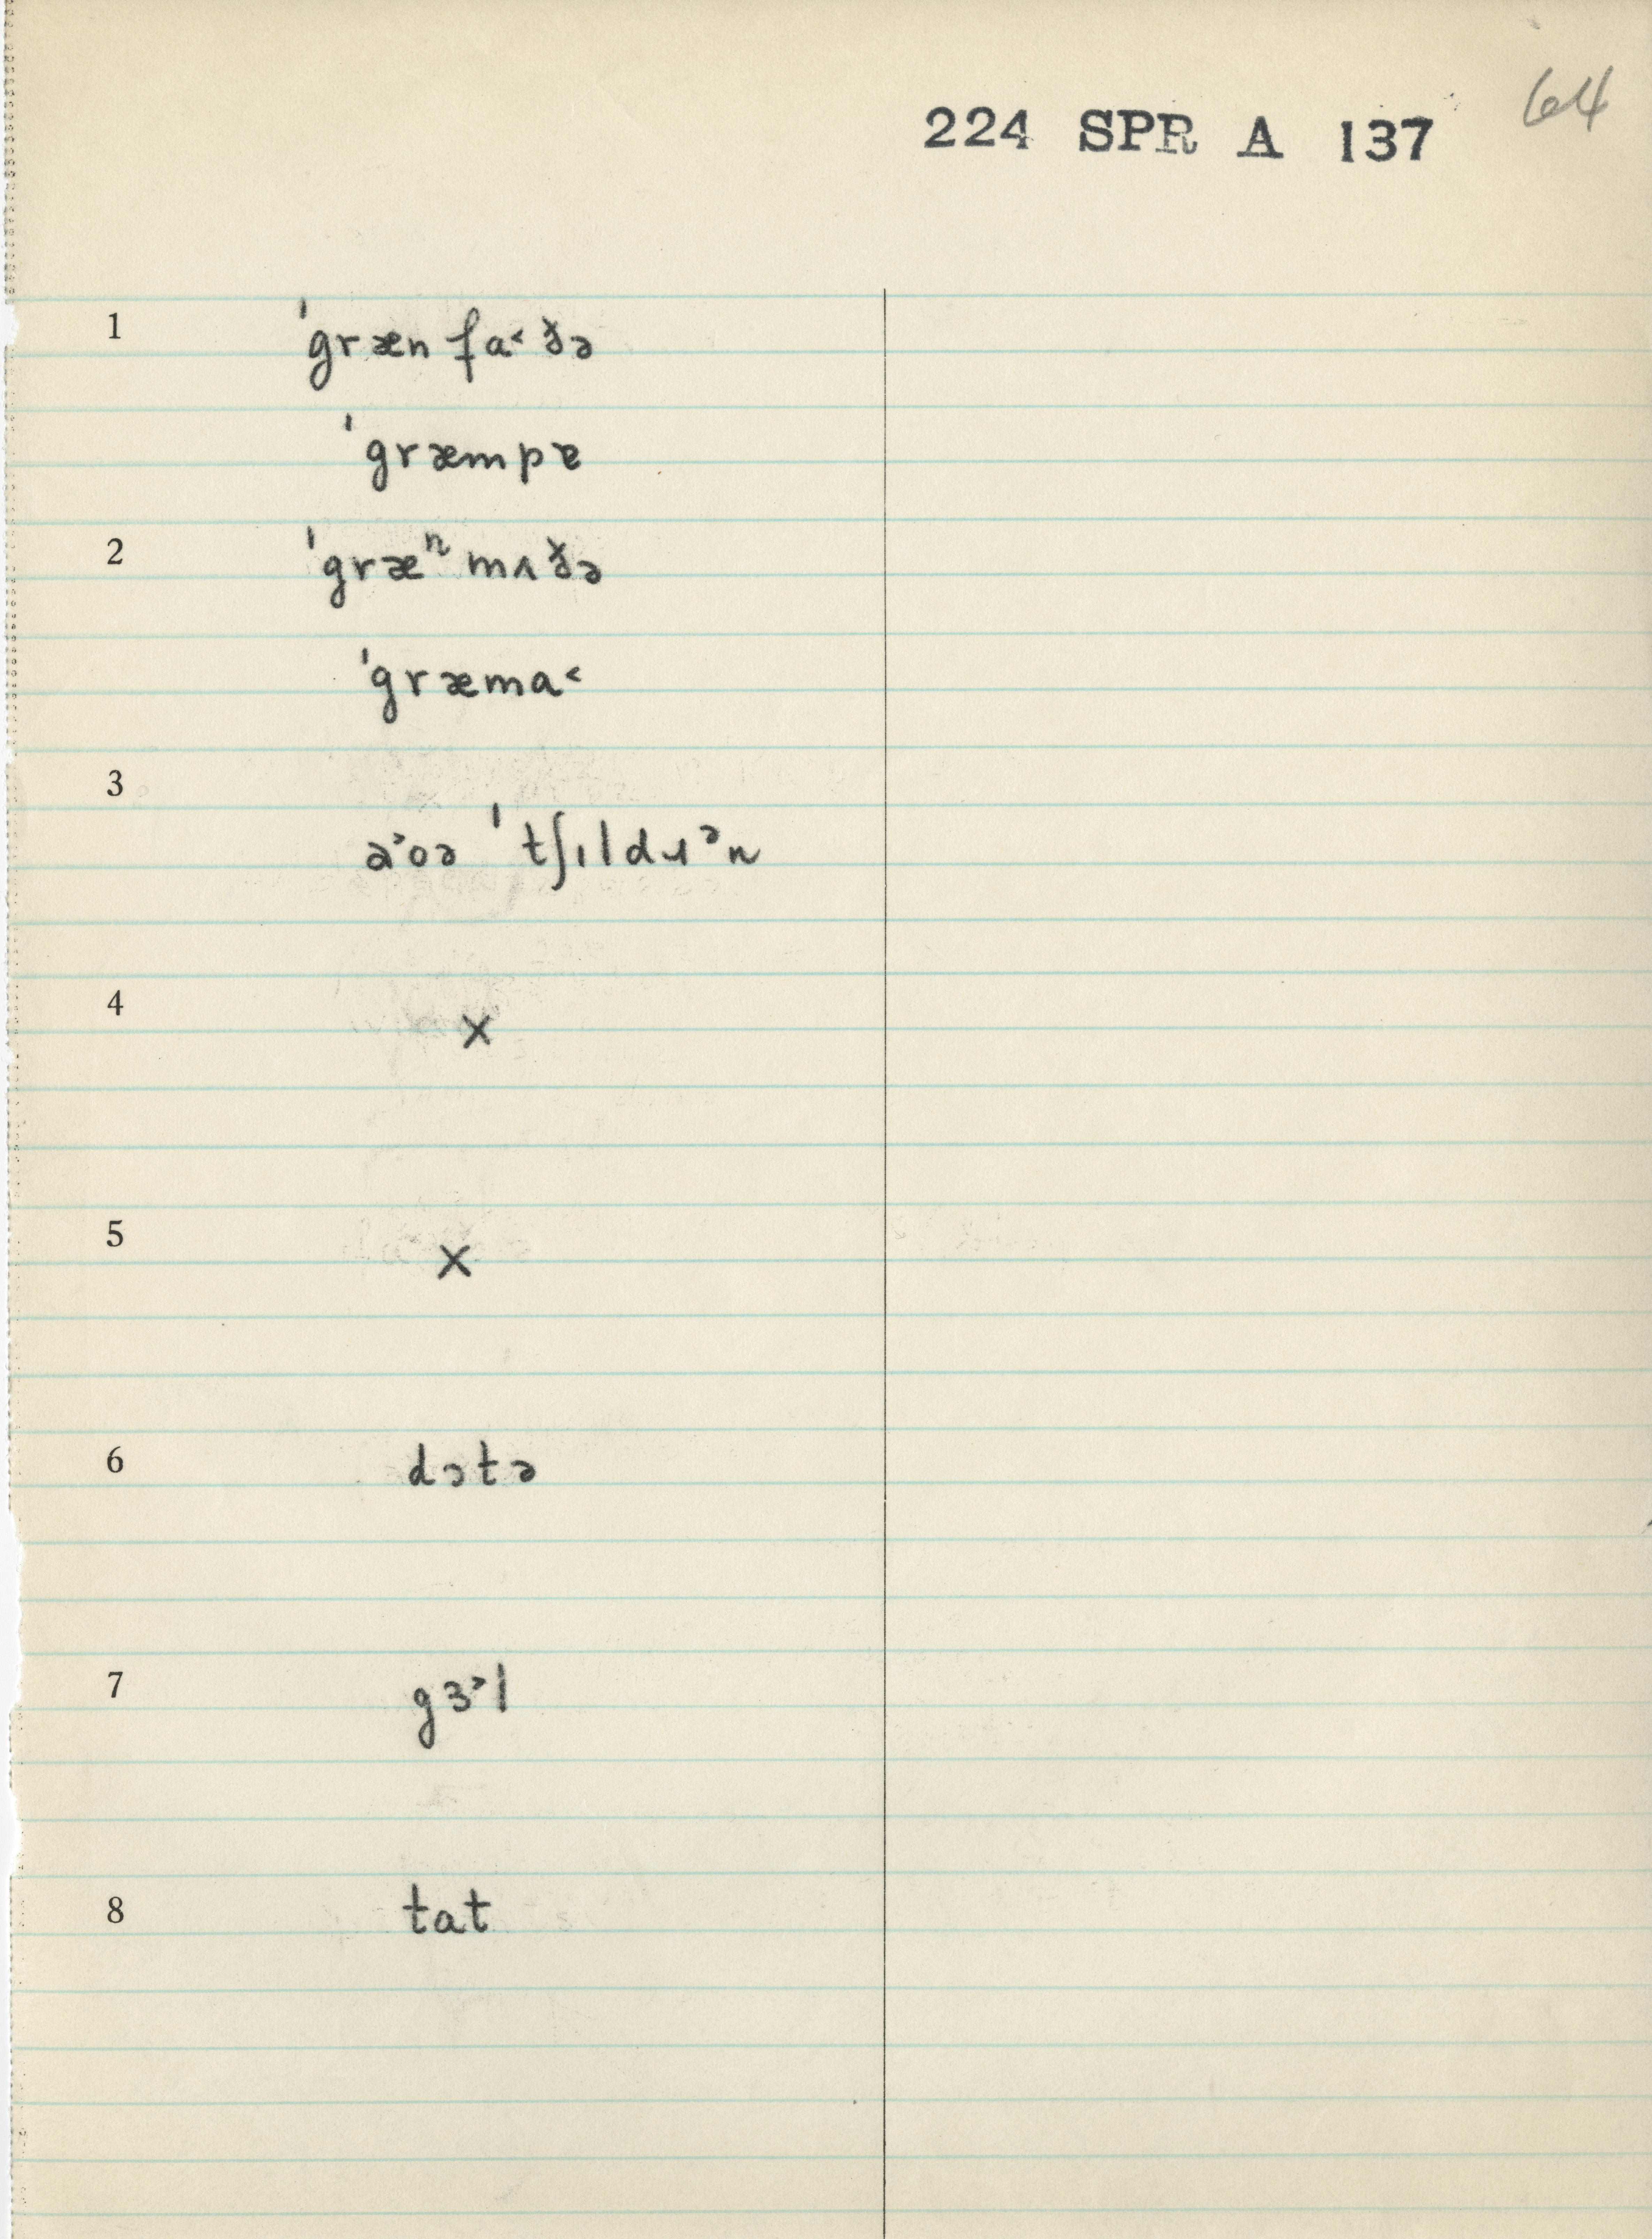 64
224 SPR A 137
1 ˈgræn fa˂ ðə
ˈgræmpɐ
2 ˈgræⁿ mʌðə
ˈgræma˂
3
a˃oə ˈtʃɪldɹᵊn
4 x
5 x
6 dɔtə
7 gɜ˃l
8 tat